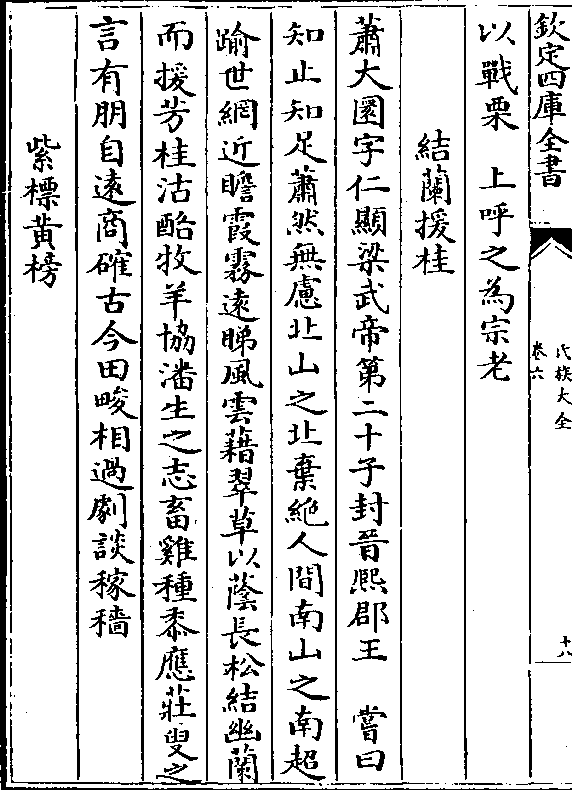 欽定四庫全書
氏族大全
卷六
十八
以戰栗　上呼之為宗老
結蘭援桂
蕭大圜字仁顯梁武帝第二十子封晉熙郡王　嘗曰
知止知足蕭然無慮北山之北棄絶人間南山之南超
踰世網近瞻霞霧逺睇風雲藉翠草以蔭長松結幽蘭
而援芳桂沽酪牧羊協潘生之志畜雞種黍應莊叟之
言有朋自逺商確古今田畯相過劇談稼穡
紫標黄榜